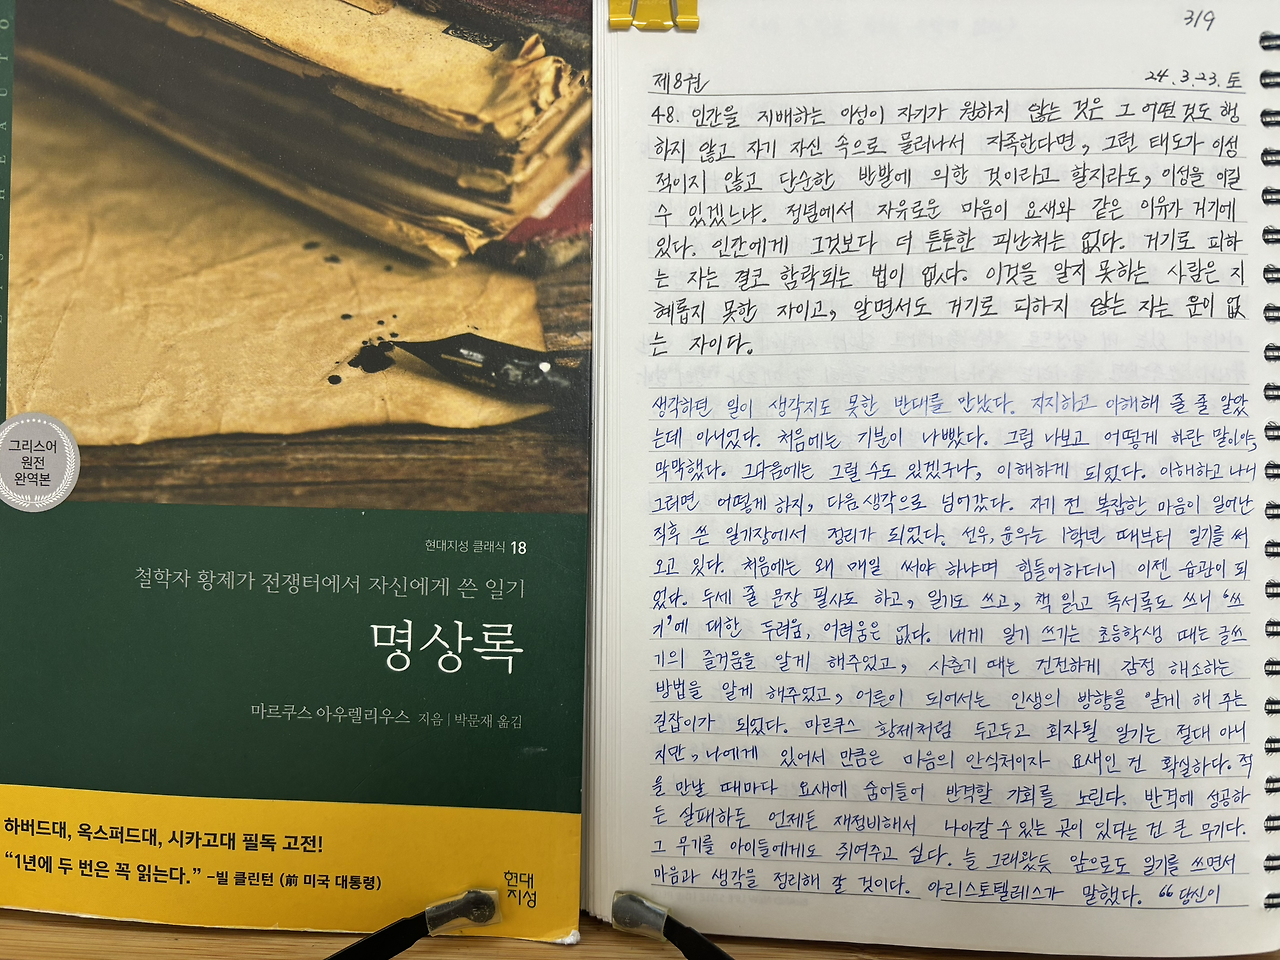 그리스어
원전
완역본
현대지성 클래식 18
철학자 황제가 전쟁터에서 자신에게 쓴 일기
명상록
마르쿠스 아우렐리우스 지음 | 박문재 옮김
하버드대, 옥스퍼드대, 시카고대 필독 고전!
“1년에 두 번은 꼭 읽는다.” –빌 클린턴 (前 미국 대통령)
현대
지성
319
제8권 24.3.23.토
48. 인간을 지배하는 이성이 자기가 원하지 않는 것은 그 어떤 것도 행
하지 않고 자기 자신 속으로 물러나서 자족한다면, 그런 태도가 이성
적이지 않고 단순한 반발에 의한 것이라고 할지라도, 이성을 이길
수 있겠느냐. 정념에서 자유로운 마음이 요새와 같은 이유가 거기에
있다. 인간에게 그것보다 더 튼튼한 피난처는 없다. 거기로 피하
는 자는 결코 함락되는 법이 없다. 이것을 알지 못하는 사람은 지
혜롭지 못한 자이고, 알면서도 거기로 피하지 않는 자는 운이 없
는 자이다.
생각하던 일이 생각지도 못한 반대를 만났다. 지지하고 이해해 줄 줄 알았
는데 아니었다. 처음에는 기분이 나빴다. 그럼 나보고 어떻게 하란 말이야,
막막했다. 그다음에는 그럴 수도 있겠구나, 이해하게 되었다. 이해하고 나니
그러면 어떻게 하지, 다음 생각으로 넘어갔다. 자기 전 복잡한 마음이 일어난
직후 쓴 일기장에서 정리가 되었다. 선우, 윤우는 1학년 때부터 일기를 써
오고 있다. 처음에는 왜 매일 써야 하냐며 힘들어하더니 이젠 습관이 되
었다. 두세 줄 문장 필사도 하고, 일기도 쓰고, 책 읽고 독서록도 쓰니 ‘쓰
기’에 대한 두려움, 어려움은 없다. 내게 일기 쓰기는 초등학생 때는 글쓰
기의 즐거움을 알게 해주었고, 사춘기 때는 건전하게 감정 해소하는
방법을 알게 해주었고, 어른이 되어서는 인생의 방향을 알게 해 주는
길잡이가 되었다. 마르쿠스 황제처럼 두고두고 회자될 일기는 절대 아니
지만, 나에게 있어서 만큼은 마음의 안식처이자 요새인 건 확실하다. 적
을 만날 때마다 요새에 숨어들어 반격할 기회를 노린다. 반격에 성공하
든 실패하든 언제든 재정비해서 나아갈 수 있는 곳이 있다는 건 큰 무기다.
그 무기를 아이들에게도 쥐여주고 싶다. 늘 그래왔듯 앞으로도 일기를 쓰면서
마음과 생각을 정리해 갈 것이다. 아리스토텔레스가 말했다. “당신이